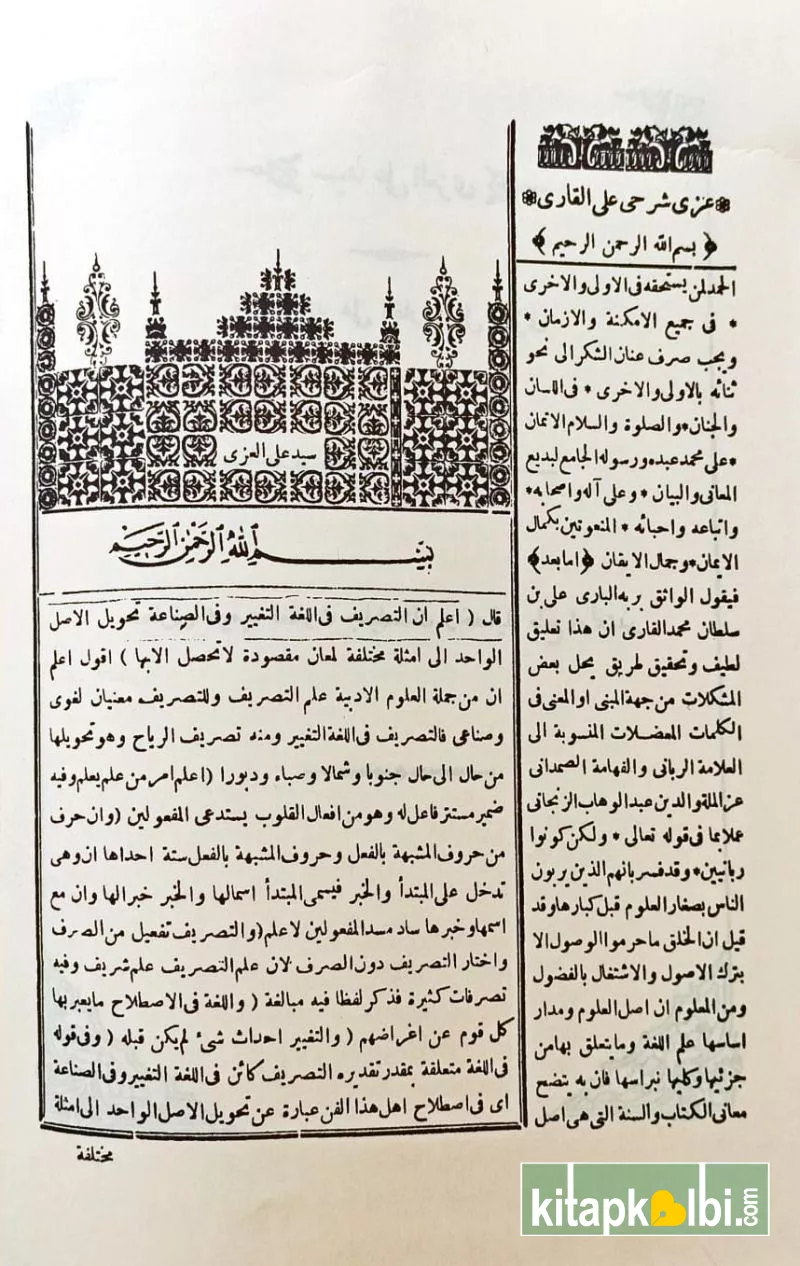 سيد على العزى
بسم الله الرحمن الرحيم
قال ( اعلم ان التصريف فى اللغة التغيير وفى الصناعة تحويل الاصل
الواحد الى امثلة مختلفة لمعان مقصودة لا تحصل الابها ) اقول اعلم
ان من جملة العلوم الادبية علم التصريف وللتصريف معنيان لغوى
وصناعى فالتصريف فى اللغة التغيير ومنه تصريف الرياح وهو تحويلها
من حال الى حال جنوبا وشمالا وصباء ودبورا ( اعلم امر من علم يعلم وفيه
ضمير مستتر فاعل له وهو من افعال القلوب يستدعى المفعولين ( وان حرف
من حروف المشبهة بالفعل وحروف المشبهة بالفعل ستة احداها ان وهى
تدخل على المبتدأ والخبر فيسمى المبتدأ اسمالها والخبر خبرالها وان مع
اسمها وخبرها ساد مسد المفعولين لاعلم ( والتصريف تفعيل من الصرف
واختار التصريف دون الصرف لان علم التصريف علم شريف وفيه
تصرفات كثيرة فذكر لفظا فيه مبالغة ( واللغة فى الاصطلاح مايعبر بها
كل قوم عن اغراضهم ( والتغيير احداث شئ لم يكن قبله ( وفى قوله
فى اللغة متعلقة بمقدر تقديره التصريف كائن فى اللغة التغيير وفى الصناعة
اى فى اصطلاح اهل هذا الفن عبارة عن تحويل الاصل الواحد الى امثلة
مختلفة
❁ عزى شرحى على القارى ❁
﴿ بسم الله الرحمن الرحيم ﴾
الحمد لمن يستحقه فى الاولى والاخرى
* فى جميع الامكنة والازمان *
ويجب صرف عنان الشكر الى نحو
ثنائه بالاولى والاخرى * فى اللسان
والجنان * والصلوة والسلام الاتمان
* على محمد عبده ورسوله الجامع لبديع
المعانى والبيان * وعلى آله واصحابه *
واتباعه واحبائه * المنعوتين بكمال
الايمان * وجمال الايقان ﴿ اما بعد ﴾
فيقول الواثق بربه البارى على بن
سلطان محمد القارى ان هذا تعليق
لطيف وتحقيق طريق يحل بعض
المشكلات من جهة المبنى او المعنى فى
الكلمات المعضلات المنسوبة الى
العلامة الربانى والفهامة الصمدانى
عز الملة والدين عبد الوهاب الزنجانى
عملا بما فى قوله تعالى * ولكن كونوا
ربانيين * وقد فسر بانهم الذين يربون
الناس بصغار العلوم قبل كبارها وقد
قيل ان الخلق ماحرموا الوصول الا
بترك الاصول والاشتغال بالفضول
ومن المعلوم ان اصل العلوم ومدار
اساسها علم اللغة وما يتعلق بهامن
جزئيها وكليها نبراسها فان به يتضح
معانى الكتاب والسنة التى هى اصل
kitapkalbi.com